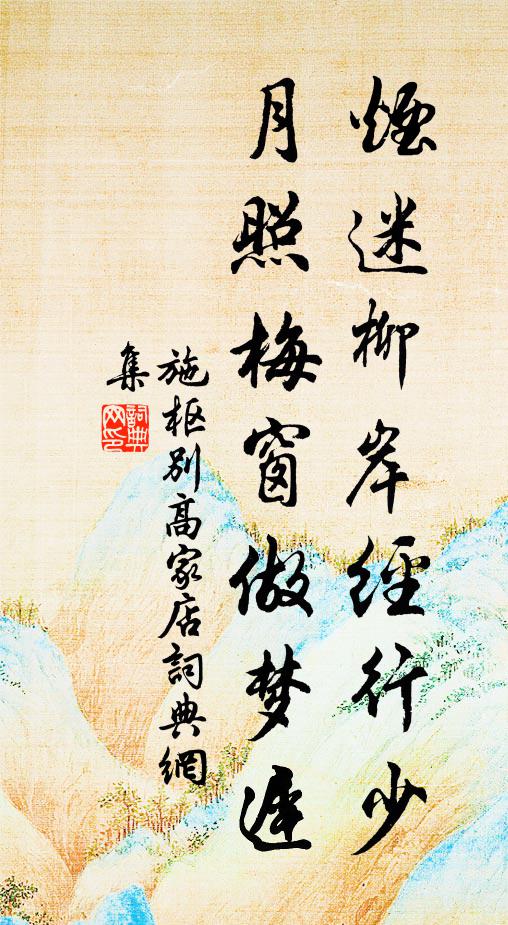 煙迷柳岸經行少
月照梅窗做梦遲
施枢别高家店詞典網
集
詞典网印